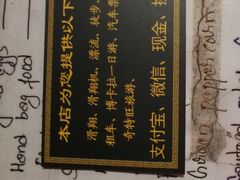 本店为您提供以下
滑翔、滑翔机、漂流、徒步、
租车、博卡拉一日游、汽车票
奇特旺旅游、
支付宝、微信、现金、
Hand bag
pepper